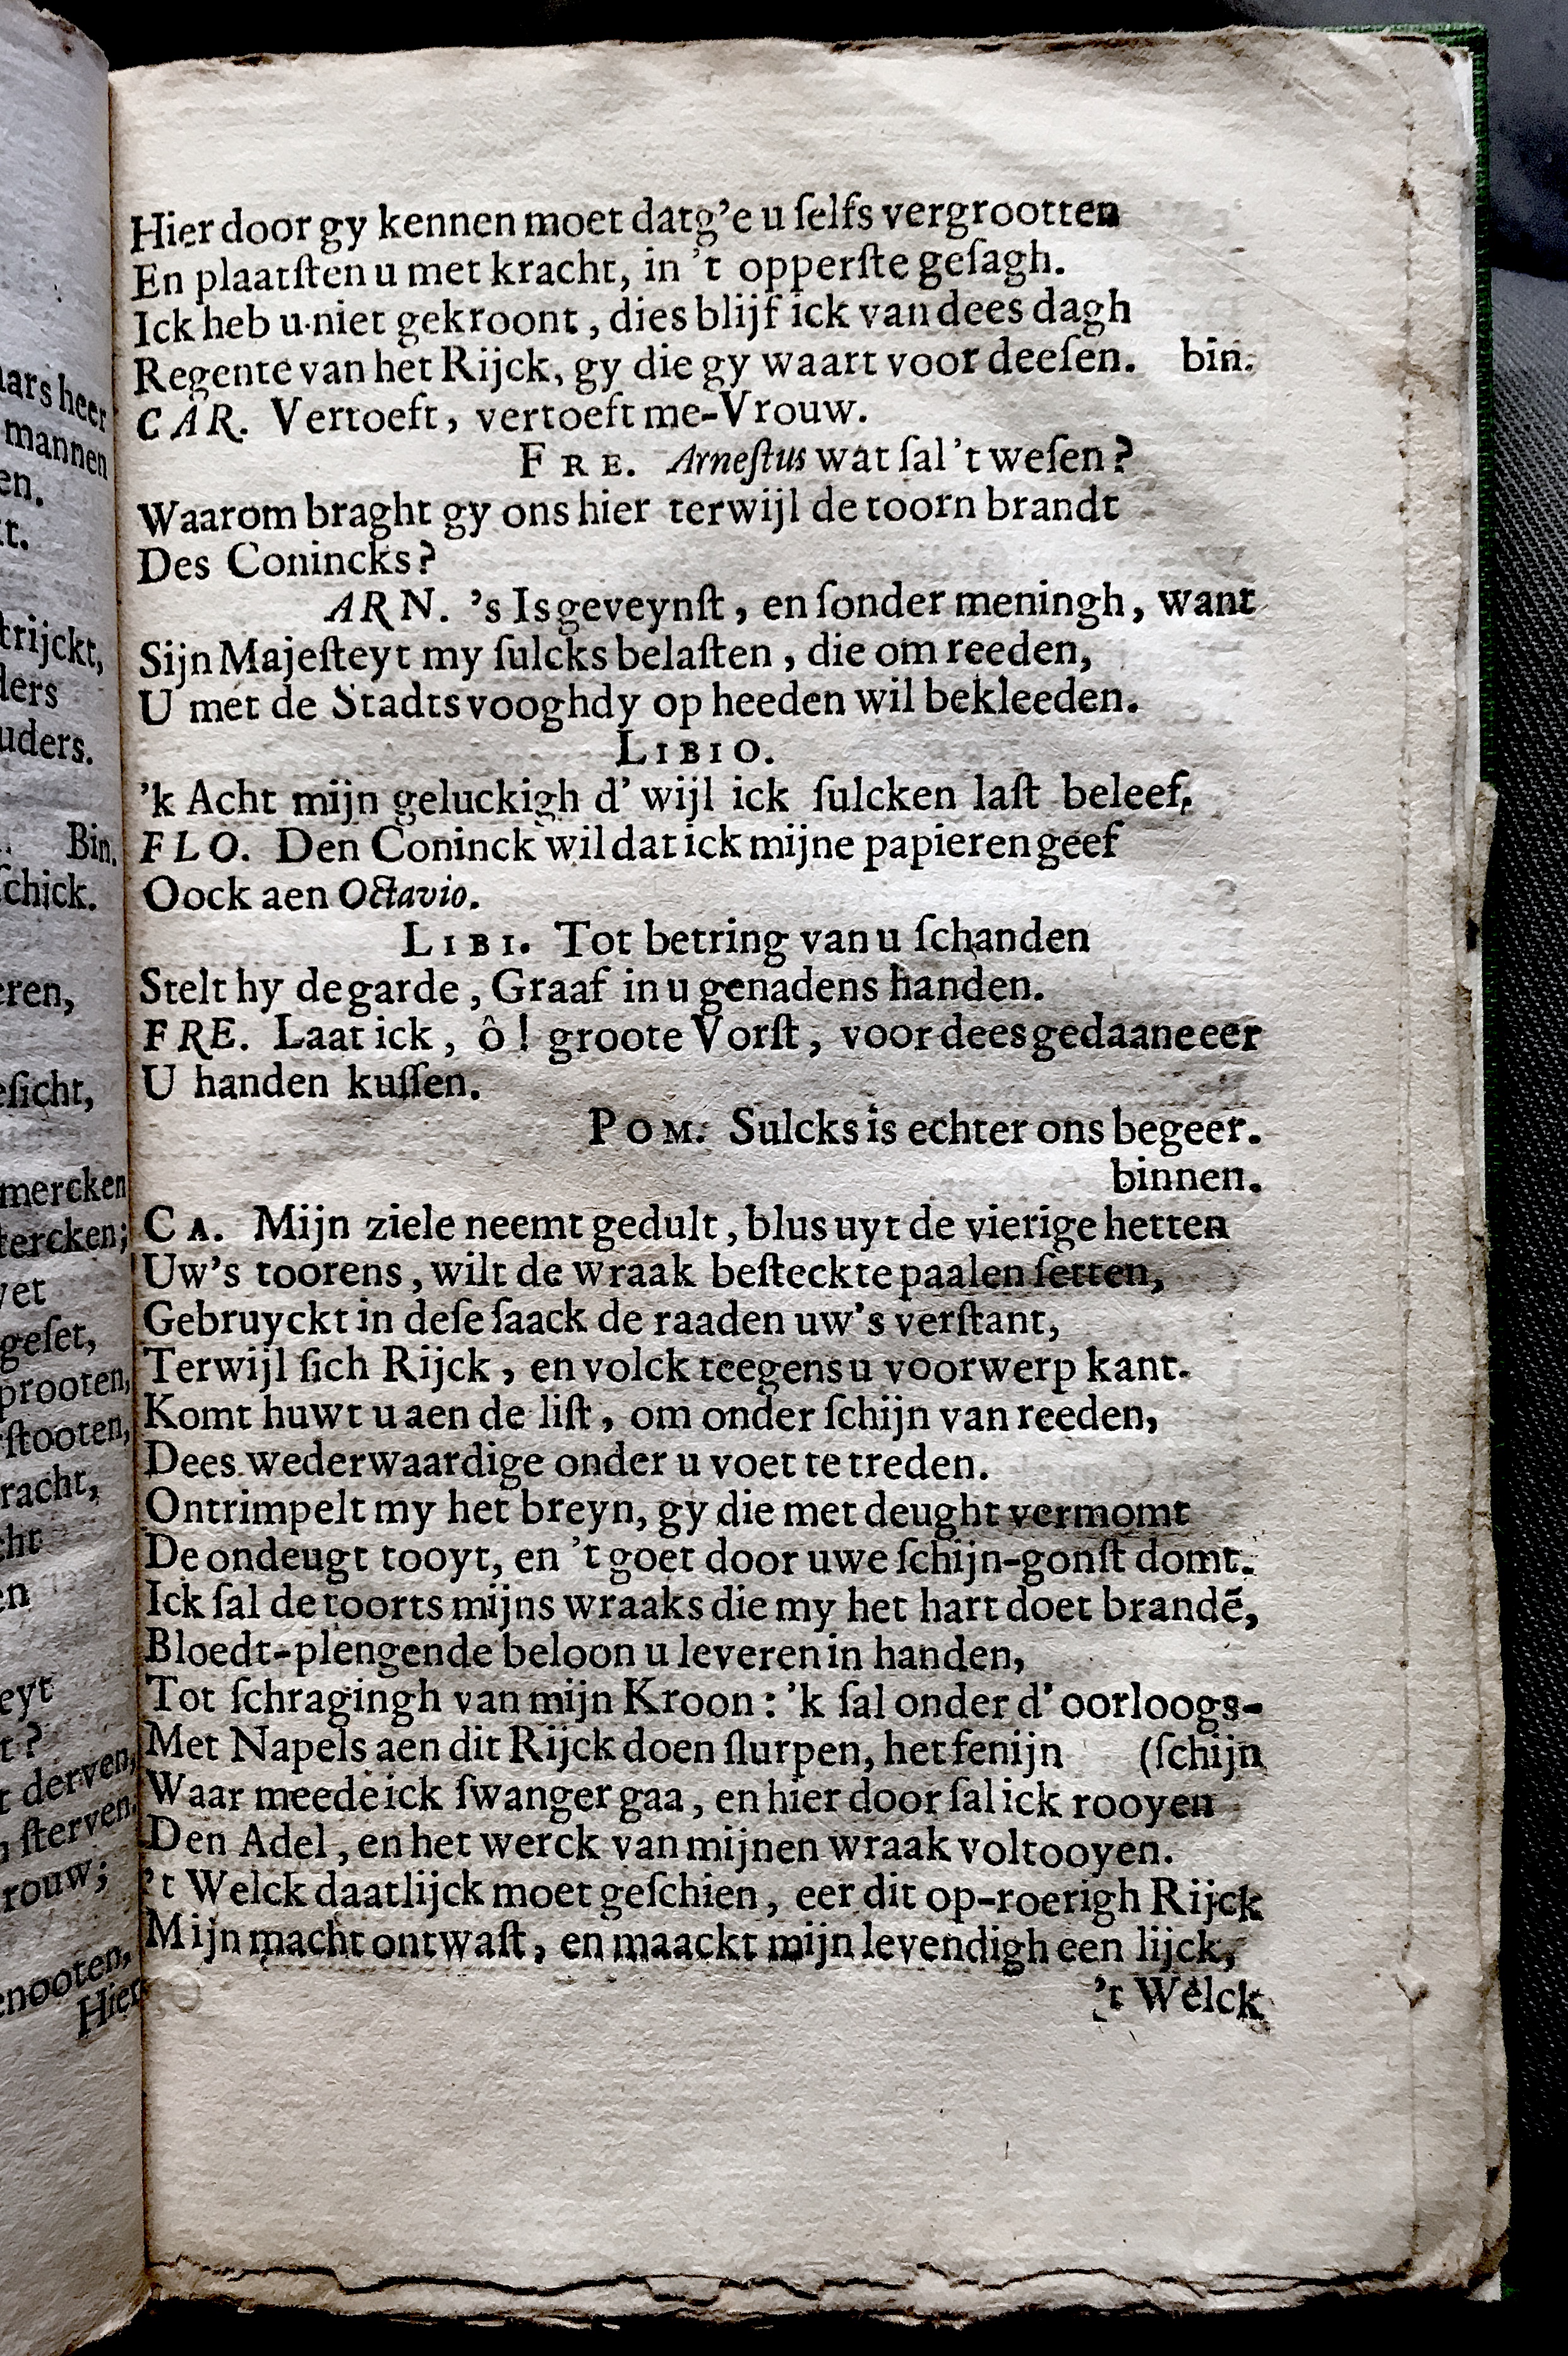 Hier door gy kennen moet datg'e u ſelfs vergrootten
En plaatſten u met kracht, in 't opperſte geſagh.
Ick heb u niet gekroont, dies blijf ick van dees dagh
Regente van het Rijck, gy die gy waart voor deeſen. bin.
CAR. Vertoeft, vertoeft me-Vrouw.
FRE. Arneſtus wat ſal 't weſen?
Waarom braght gy ons hier terwijl de toorn brandt
Des Conincks?
ARN. 's Is geveynſt, en ſonder meningh, want
Sijn Majeſteyt my ſulcks belaſten, die om reeden,
U met de Stadts vooghdy op heeden wil bekleeden.
LIBIO.
'k Acht mijn geluckigh d' wijl ick ſulcken laſt beleef,
FLO. Den Coninck wil dat ick mijne papieren geef
Oock aen Octavio.
LIBI. Tot betring van u ſchanden
Stelt hy de garde, Graaf in u genadens handen.
FRE. Laat ick, ô! groote Vorſt, voor dees gedaane eer
U handen kuſſen.
POM. Sulcks is echter ons begeer.
binnen.
CA. Mijn ziele neemt gedult, blus uyt de vierige hetten
Uw's toorens, wilt de wraak beſteckte paalen ſetten,
Gebruyckt in deſe ſaack de raaden uw's verſtant,
Terwijl ſich Rijck, en volck teegens u voorwerp kant.
Komt huwt u aen de liſt, om onder ſchijn van reeden,
Dees wederwaardige onder u voet te treden.
Ontrimpelt my het breyn, gy die met deught vermomt
De ondeugt tooyt, en 't goet door uwe ſchijn-gonſt domt.
Ick ſal de toorts mijns wraaks die my het hart doet brandē,
Bloedt-plengende beloon u leveren in handen,
Tot ſchragingh van mijn Kroon: 'k ſal onder d' oorloogs-
Met Napels aen dit Rijck doen ſlurpen, het fenijn (ſchijn
Waar meede ick ſwanger gaa, en hier door ſal ick rooyen
Den Adel, en het werck van mijnen wraak voltooyen.
't Welck daatlijck moet geſchien, eer dit op-roerigh Rijck
Mijn macht ontwaſt, en maackt mijn levendigh een lijck,
't Welck